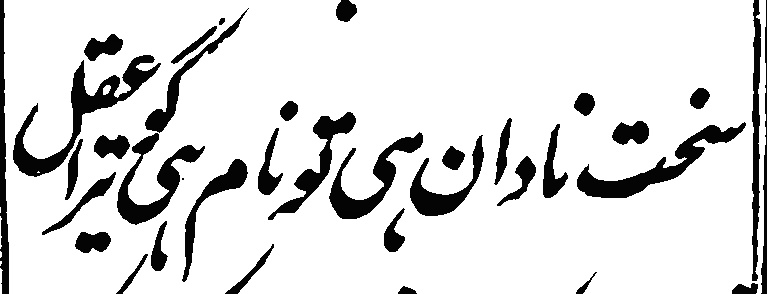 سخت نادان ہی تو نام ہی گو تیرا عقل